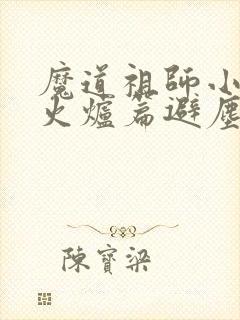 魔道祖師小
火爐篇避塵
陳寶梁